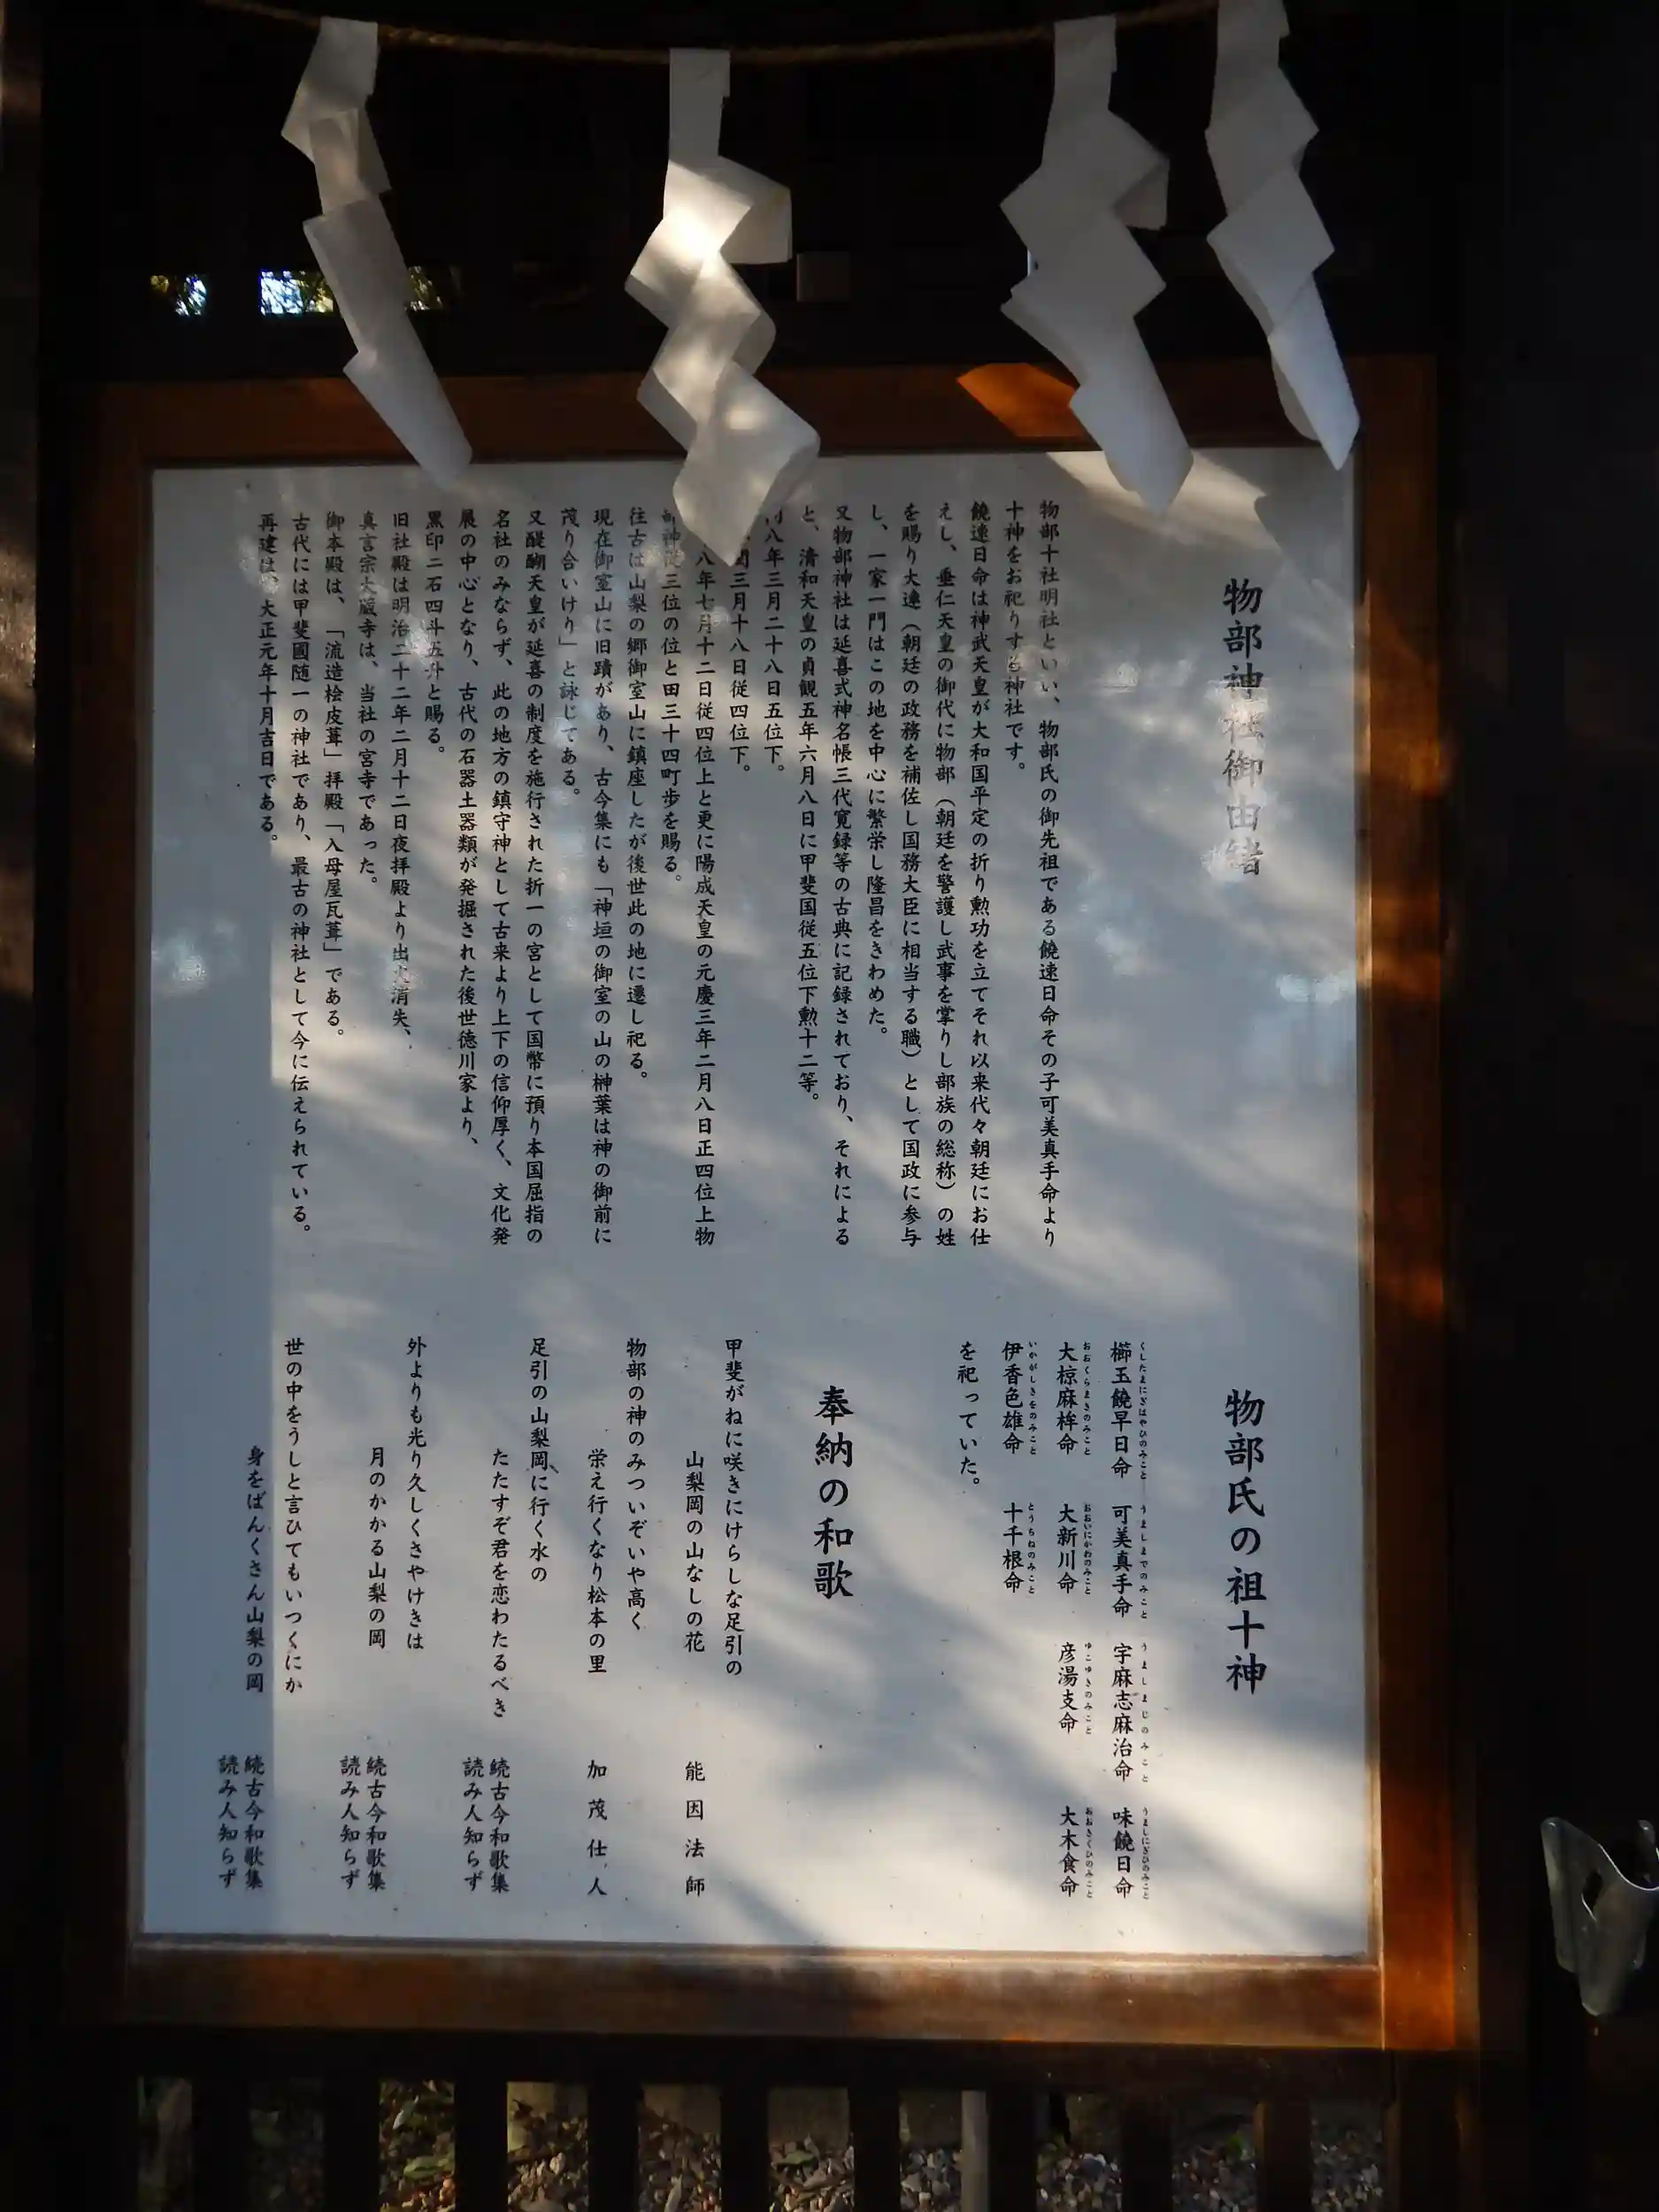 物部神社御由緒
物部十社明社といい、物部氏の御先祖である饒速日命その子可美真手命より
十神をお祀りする神社です。
饒速日命は神武天皇が大和国平定の折り勲功を立てそれ以来代々朝廷にお仕
えし、垂仁天皇の御代に物部（朝廷を警護し武事を掌りし部族の総称）の姓
を賜り大連（朝廷の政務を補佐し国務大臣に相当する職）として国政に参与
し、一家一門はこの地を中心に繁栄し隆昌をきわめた。
又物部神社は延喜式神名帳三代寛録等の古典に記録されており、それによる
と、清和天皇の貞観五年六月八日に甲斐国従五位下勲十二等。
八年三月二十八日五位下。
三月十八日従四位下。
八年七月十二日従四位上と更に陽成天皇の元慶三年二月八日正四位上物
部神従三位の位と田三十四町歩を賜る。
往古は山梨の郷御室山に鎮座したが後世此の地に遷し祀る。
現在御室山に旧蹟があり、古今集にも「神垣の御室の山の榊葉は神の御前に
茂り合いけり」と詠じてある。
又醍醐天皇が延喜の制度を施行された折一の宮として国幣に預り本国屈指の
名社のみならず、此の地方の鎮守神として古来より上下の信仰厚く、文化発
展の中心となり、古代の石器土器類が発掘された後世徳川家より、
黒印二石四斗五升と賜る。
旧社殿は明治二十二年二月十二日夜拝殿より出火消失、
真言宗大蔵寺は、当社の宮寺であった。
御本殿は、「流造桧皮葺」拝殿「入母屋瓦葺」である。
古代には甲斐國随一の神社であり、最古の神社として今に伝えられている。
再建は、大正元年十月吉日である。
物部氏の祖十神
くしたまにぎはやひのみこと うましまでのみこと うましまじのみこと うましにぎひのみこと
櫛玉饒早日命 可美真手命 宇麻志麻治命 味饒日命
おおくらまきのみこと おおにいかわのみこと ゆこゆきのみこと おおきくひのみこと
大椋麻桙命 大新川命 彦湯支命 大木食命
いかがしきをのみこと とうちねのみこと
伊香色雄命 十千根命
を祀っていた。
奉納の和歌
甲斐がねに咲きにけらしな足引の
山梨岡の山なしの花 能因法師
物部の神のみついぞいや高く
栄え行くなり松本の里 加茂仕人
足引の山梨岡に行く水の
たたすぞ君を恋わたるべき 続古今和歌集
読み人知らず
外よりも光り久しくさやけきは
月のかかる山梨の岡 続古今和歌集
読み人知らず
世の中をうしと言ひてもいつくにか
身をばんくさん山梨の岡 続古今和歌集
読み人知らず